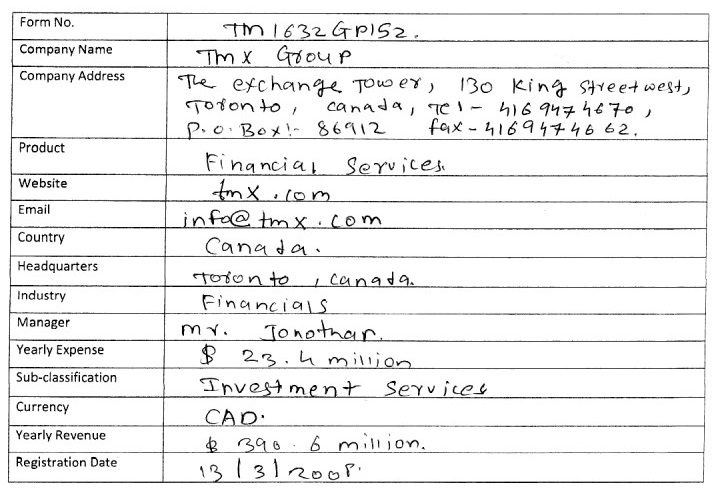 Form No. TM1632GP152.
Company Name TMX Group
Company Address The exchange Tower, 130 King Street west,
Toronto, Canada, Tel - 416 947 4670,
P.O. Box:- 86912 fax - 416 947 4662.
Product Financial Services.
Website tmx.com
Email info@tmx.com
Country Canada.
Headquarters Toronto, Canada.
Industry Financials
Manager Mr. Jonothan.
Yearly Expense $ 23.4 million
Sub-classification Investment Services
Currency CAD.
Yearly Revenue $ 390.6 million.
Registration Date 13/3/2008.